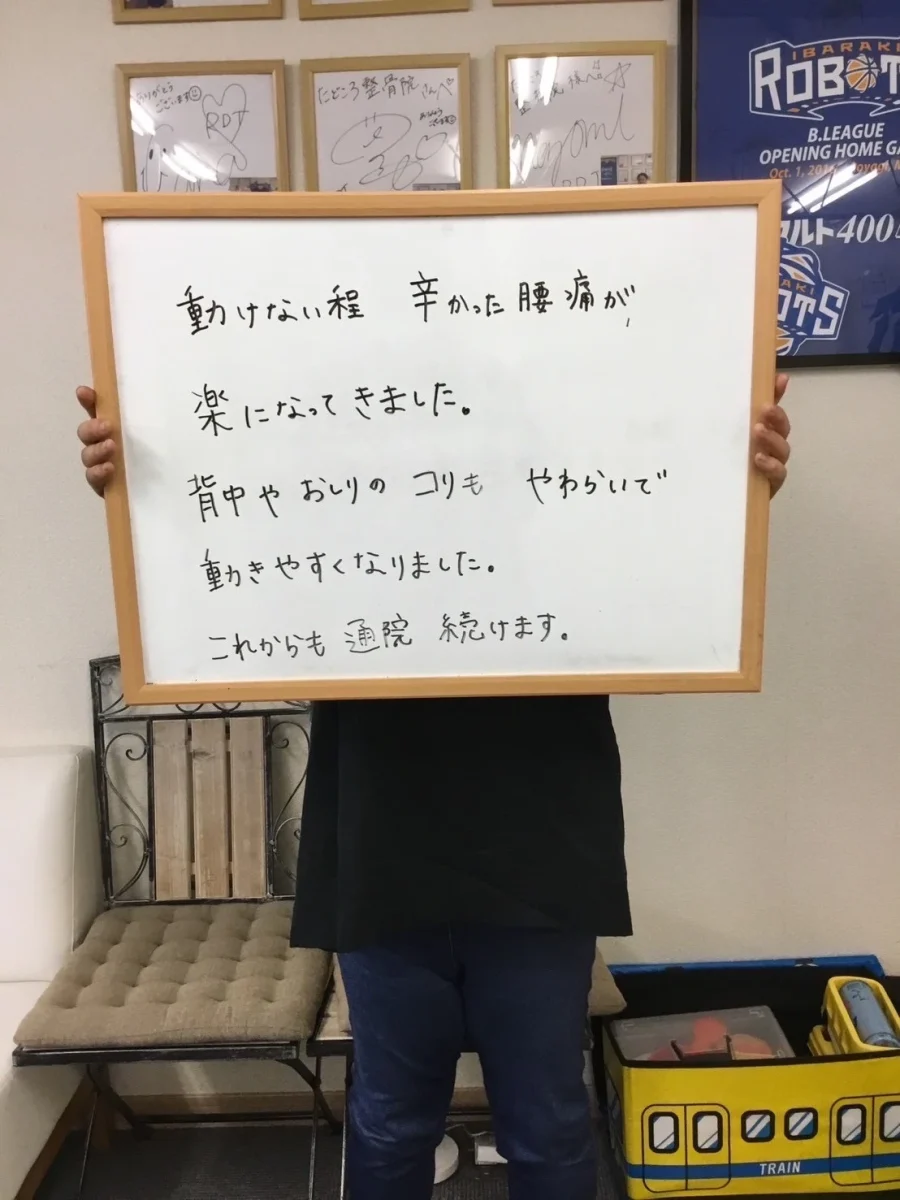 ありがとう
ございます
RDT
たどころ整骨院さんへ
様へ
RDT
IBARAKI
ROBOTS
B.LEAGUE
OPENING HOME GA
Oct. 1, 201
ルト400
OTS
動けない程 辛かった腰痛が
楽になってきました。
背中や おしりの コリも やわらいで
動きやすくなりました。
これからも 通院 続けます。
TRAIN